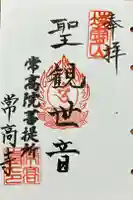 奉拝
聖観世音
常高院菩提所
常高寺